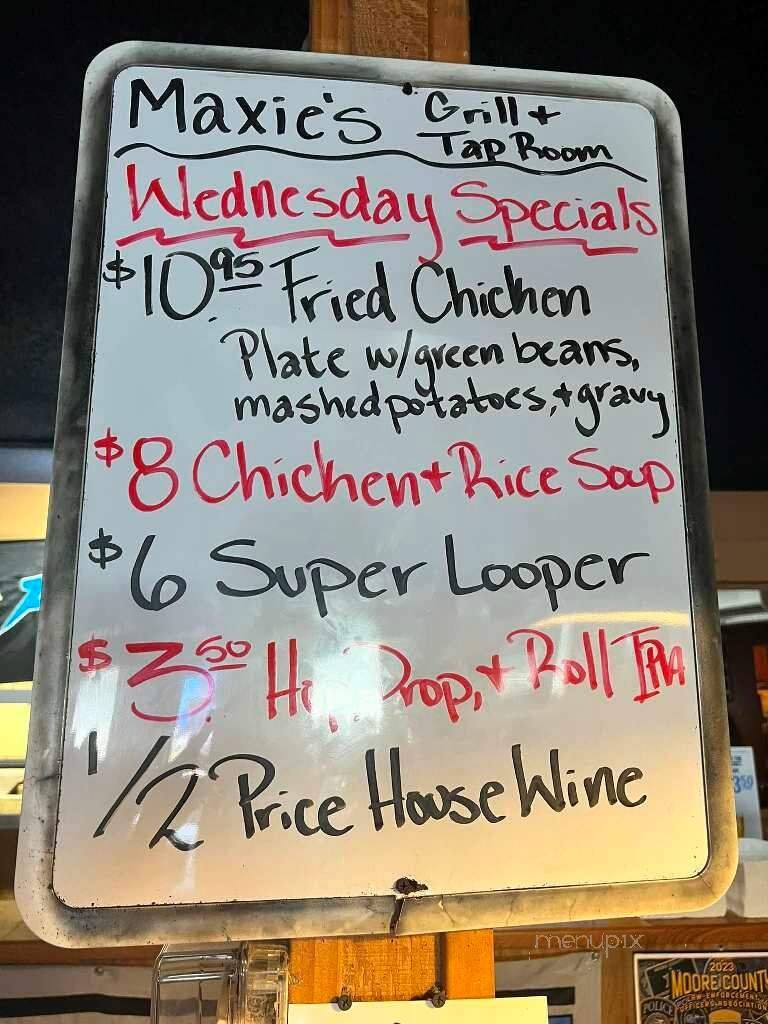 Maxie's Grill +
Tap Room
Wednesday Specials
$10.95 Fried Chicken
Plate w/green beans,
mashed potatoes, + gravy
$8 Chicken + Rice Soup
$6 Super Looper
$3.50 Hip, Drop, + Roll IPA
1/2 Price House Wine
menupix
2023
MOORE COUNTY
LAW ENFORCEMENT
OFFICERS ASSOCIATION
POLICE